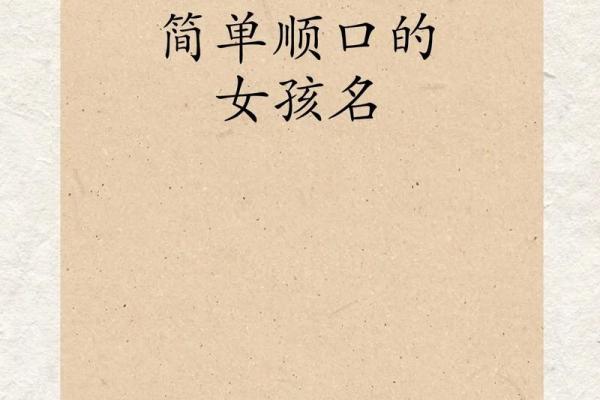 简单顺口的
女孩名